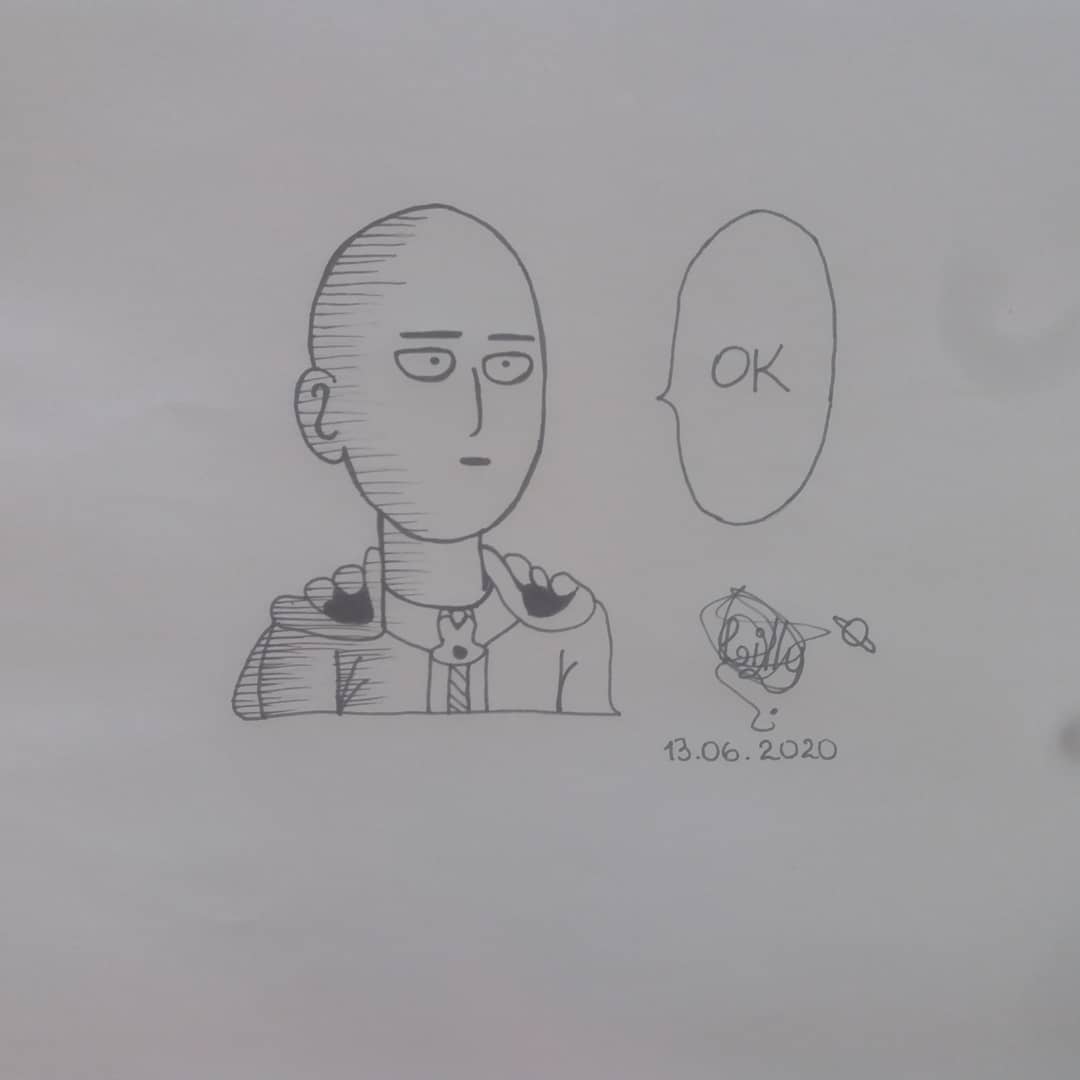 OK
13.06.2020